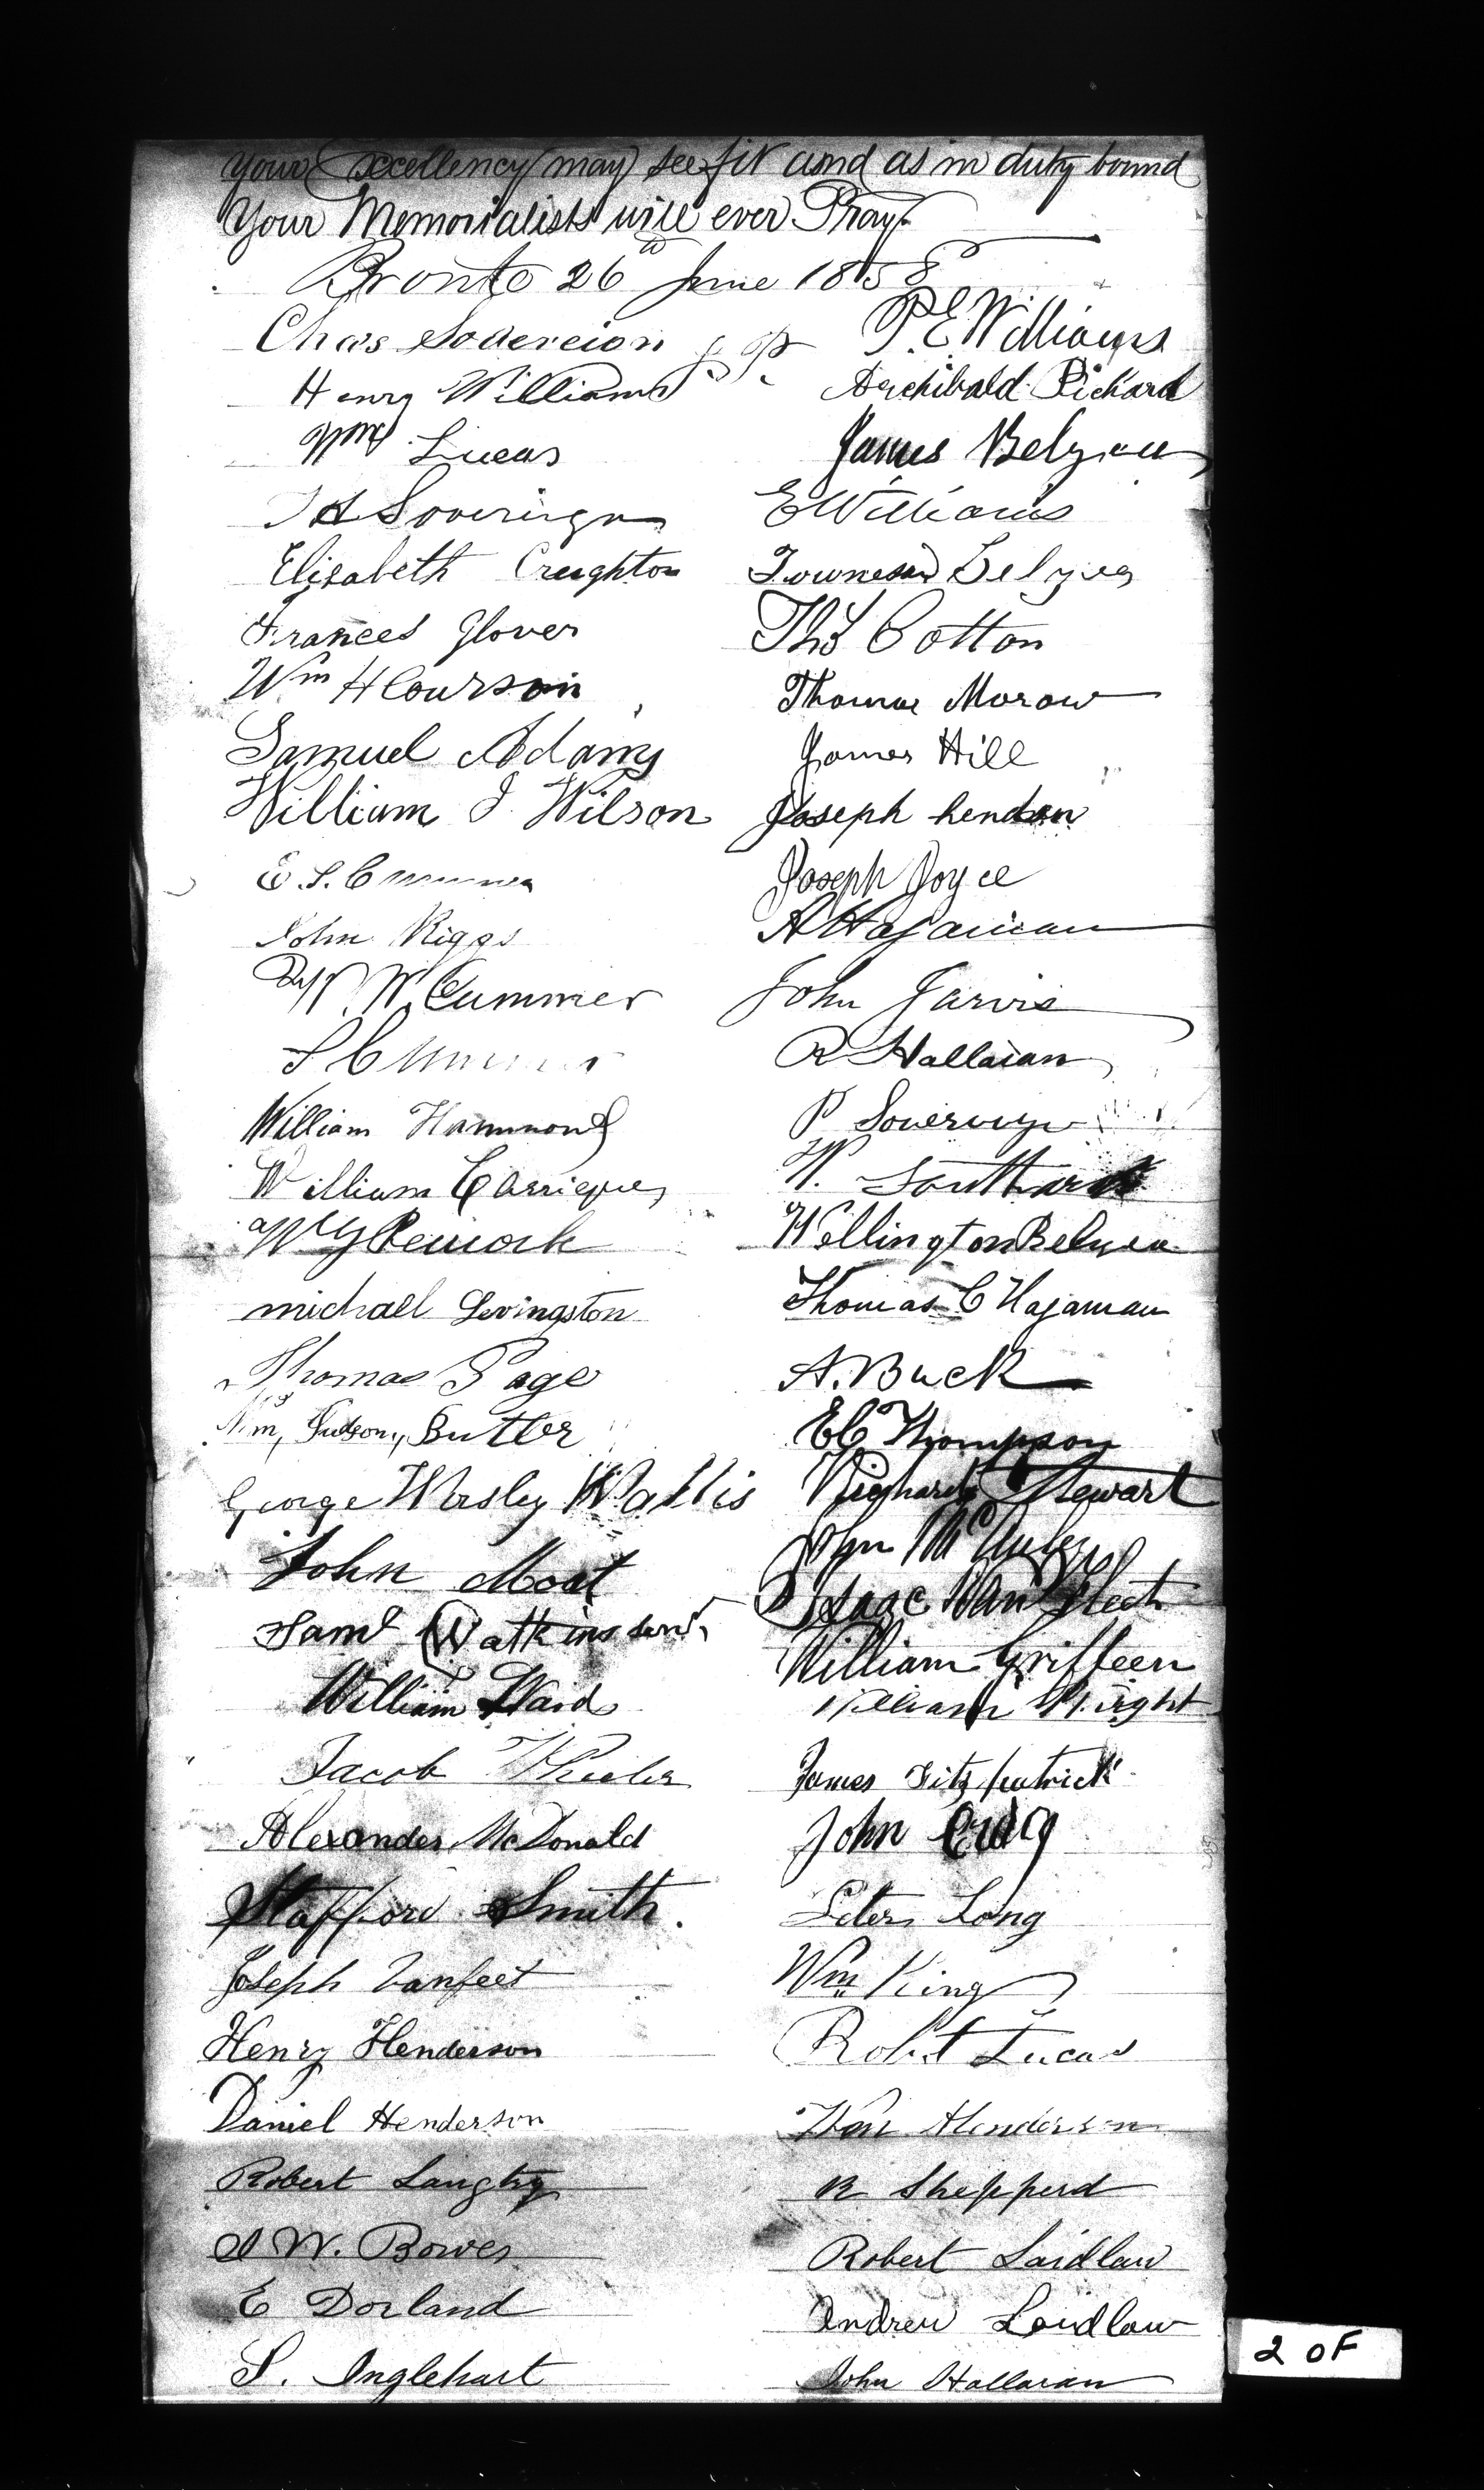 Your Excellency may see fit and as in duty bound
Your Memorialists will ever Pray
Bronte 26th June 1858
Chas Sovereign J. P.
P. E Williams
Henry Williams
Archibald Pickard
Wm Lucas
James Belyea
Sovereign
E Williams
Elisabeth Creighton
Belyea
Frances Glover
Thos Cotton
Wm H Courson
Thomas Morow
Samuel Adams
James Hill
William J Wilson
Joseph hendson
E. S.
Joseph Joyce
John Riggs
A Hagaman
W. Cummer
John Jarvis
S
R Hallaran
William Hammond
P Sovereign
William Carrique
W. Southard
Wellington Belyea
michael Levingston
Thomas C Hagaman
Thomas Page
A. Buck
Wm, Judson, Butler
E C Thompson
George Wesley Wallis
Richard Stewart
John Moat
John
Saml Watkins senr
Isaac Van Fleet
William Waid
William Griffeen
William Wright
Jacob Wheeler
James Fitzpatrick
Alexander McDonald
John Craig
Stafford Smith.
Peter Long
Joseph Vanfeet
Wm King
Henry Henderson
Robt Lucas
Daniel Henderson
Wm Henderson
Robert Langtry
R Shepperd
W. Bowes
Robert Laidlaw
E Dorland
Andrew Laidlaw
S. Inglehart
John Hallaran
2 OF